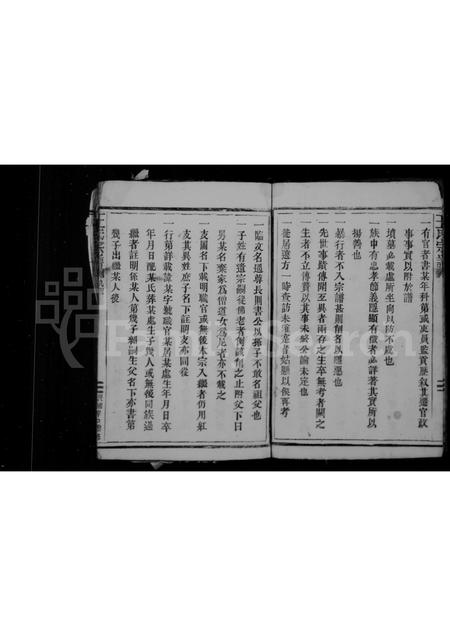 一有官者書某年科第或貢員監貢歷叙其遷官政
事事實以附於譜
一墳墓必載處所坐向以防不虞也
一族中有忠孝節義隱顯有徵者必詳著其實所以
揚善也
一暴行者不入宗譜甚則削名以懲惡也
一先世事蹟傳聞互異者兩存之生卒無考者闕之
一生者不立傳贊以其事未終公論未定也
一徙居遠方一時查訪未確遽者姑闕以俟再考
一臨文名遇尊長則書公以孫子不敢名祖父也
一子姓有違宗嗣從佛老者例該削之止附父下曰
男某名棄家為僧道女為尼者亦不載之
一支圖名下載明職官或無後本宗入繼者仍用紅
支其異姓庶子名下註明支亦同
一行第詳載諱某字號職官某居某處生年月日卒
年月日配某氏葬某處生子幾人或無後同族過
繼者註明係某人第幾子嗣生父名下亦書第
幾子出繼某人後
FamilySearch